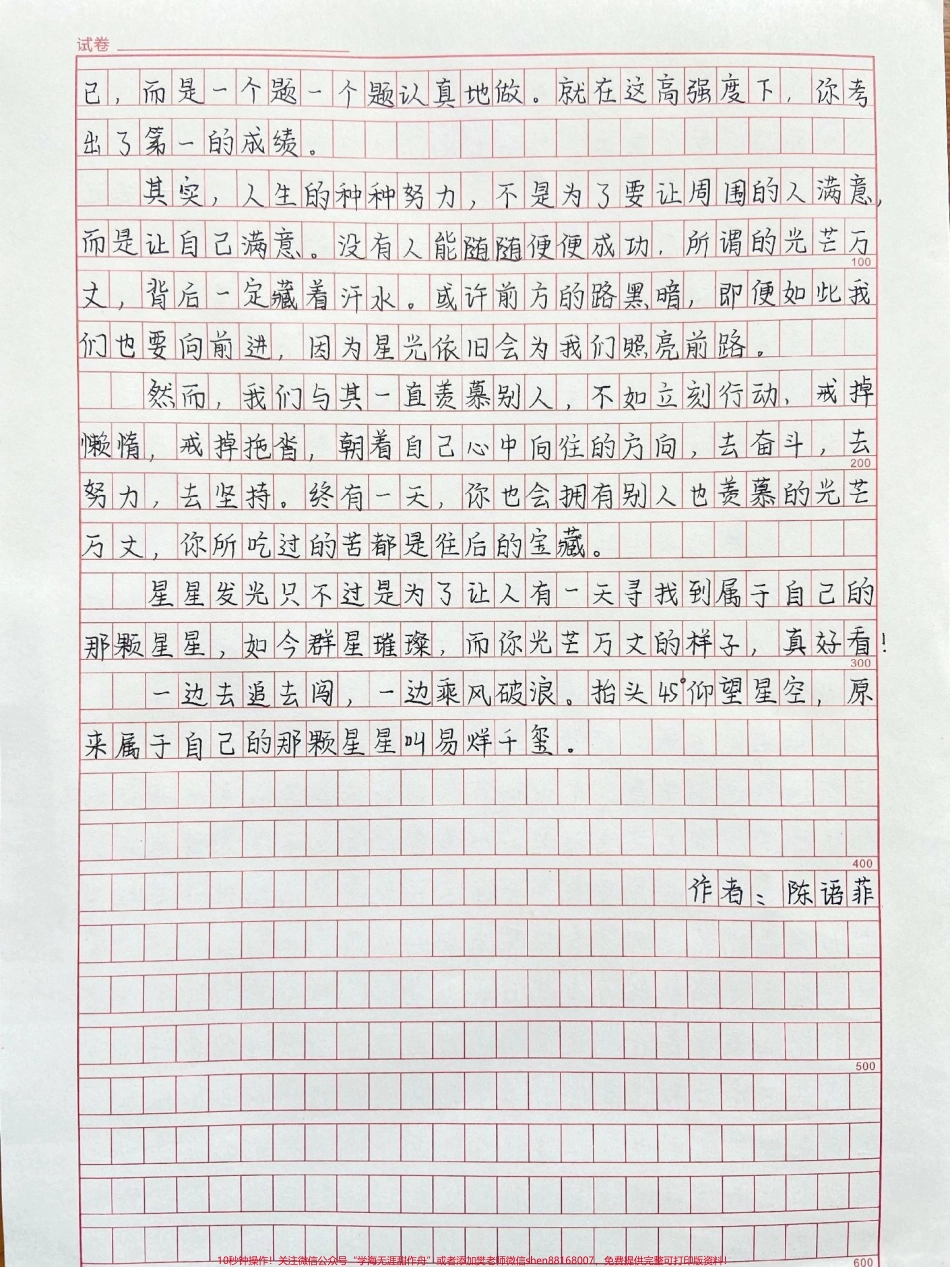 试卷
己，而是一个题一个题认真地做。就在这高强度下，你考
出了第一的成绩。
其实，人生的种种努力，不是为了要让周围的人满意，
而是让自己满意。没有人能随随便便成功，所谓的光芒万
100
丈，背后一定藏着汗水。或许前方的路黑暗，即便如此我
们也要向前进，因为星光依旧会为我们照亮前路。
然而，我们与其一直羡慕别人，不如立刻行动，戒掉
懒惰，戒掉拖沓，朝着自己心中向往的方向，去奋斗，去
200
努力，去坚持。终有一天，你也会拥有别人也羡慕的光芒
万丈，你所吃过的苦都是往后的宝藏。
星星发光只不过是为了让人有一天寻找到属于自己的
那颗星星，如今群星璀璨，而你光芒万丈的样子，真好看！
300
一边去追去闯，一边乘风破浪。抬头45°仰望星空，原
来属于自己的那颗星星叫易烊千玺。
400
作者：陈语菲
500
600
10秒钟操作！关注微信公众号“学海无涯甜作舟”或者添加樊老师微信shen88168007，免费提供完整可打印版资料！